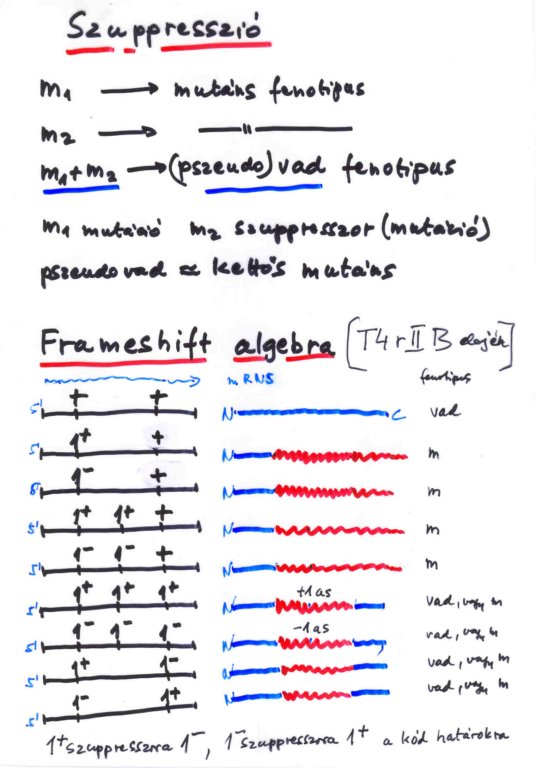 Szuppresszió
m1 → mutáns fenotípus
m2 → —"—
m1+m2 → (pszeudo)vad fenotípus
m1 mutáció m2 szuppresszor (mutáció)
pszeudovad ≈ kettős mutáns
Frameshift algebra [T4 r II B elején]
mRNS fenotípus
5' + + N C vad
5' 1+ + N m
5' 1- + N m
5' 1+ 1+ + N m
5' 1- 1- + N m
5' 1+ 1+ 1+ N +1 as vad, vagy m
5' 1- 1- 1- N -1 as vad, vagy m
5' 1+ 1- N vad, vagy m
5' 1- 1+ N vad, vagy m
1+ szuppresszora 1-, 1- szuppresszora 1+ a kód határokra